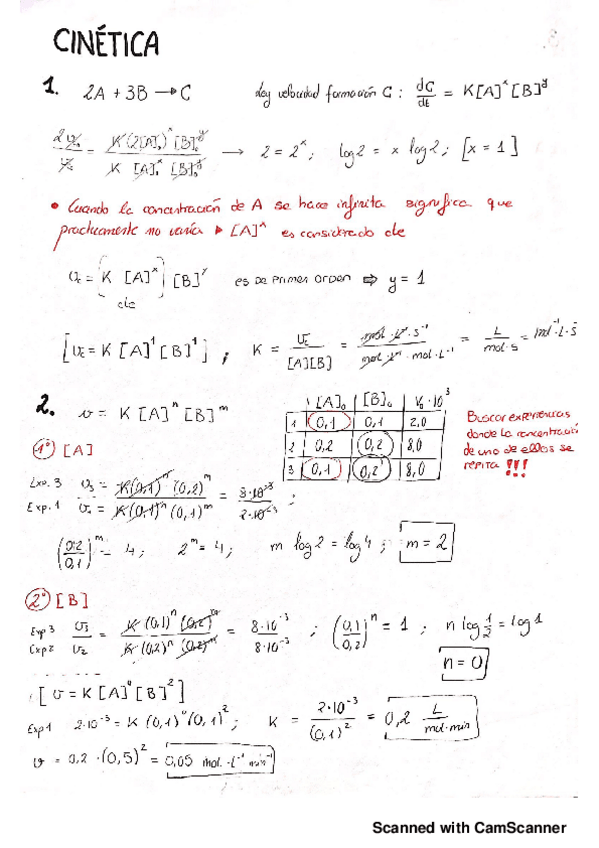 CINÉTICA
1. 2A + 3B → C    Ley velocidad formación C : dC/dt = K[A]^x [B]^y
2v₀/v₀ = K(2[A]₀)^x [B]₀^y / K [A]₀^x [B]₀^y → 2 = 2^x ; log 2 = x log 2 ; [x = 1]
• Cuando la concentración de A se hace infinita significa que
practicamente no varía ▸ [A]^x es considerado cte
v_c = (K [A]^x) [B]^y    es de primer orden ⇒ y = 1
cte
[v_c = K [A]^1 [B]^1] ; K = v_c / [A][B] = mol · L^-1 · s^-1 / mol · L^-1 · mol · L^-1 = L / mol · s = mol^-1 · L · s
2. v = K [A]^n [B]^m
[A]₀ [B]₀ V₀ · 10^3
1 0,1 0,1 2,0
2 0,2 0,2 8,0
3 0,1 0,2 8,0
Buscar experiencias
donde la concentración
de uno de ellos se
repita !!!
1º) [A]
Exp. 3 / Exp. 1    v₃/v₁ = K(0,1)^n (0,2)^m / K(0,1)^n (0,1)^m = 8·10^-3 / 2·10^-3 ;
(0,2/0,1)^m = 4 ; 2^m = 4 ; m log 2 = log 4 ; m = 2
2º) [B]
Exp 3 / Exp 2    v₃/v₂ = K (0,1)^n (0,2)^m / K (0,2)^n (0,2)^m = 8·10^-3 / 8·10^-3 ; (0,1/0,2)^n = 1 ; n log 1/2 = log 1
n = 0
[v = K [A]^0 [B]^2]
Exp 1    2·10^-3 = K (0,1)^0 (0,1)^2 ; K = 2·10^-3 / (0,1)^2 = 0,2 L / mol·min
v = 0,2 · (0,5)^2 = 0,05 mol · L^-1 min^-1
Scanned with CamScanner